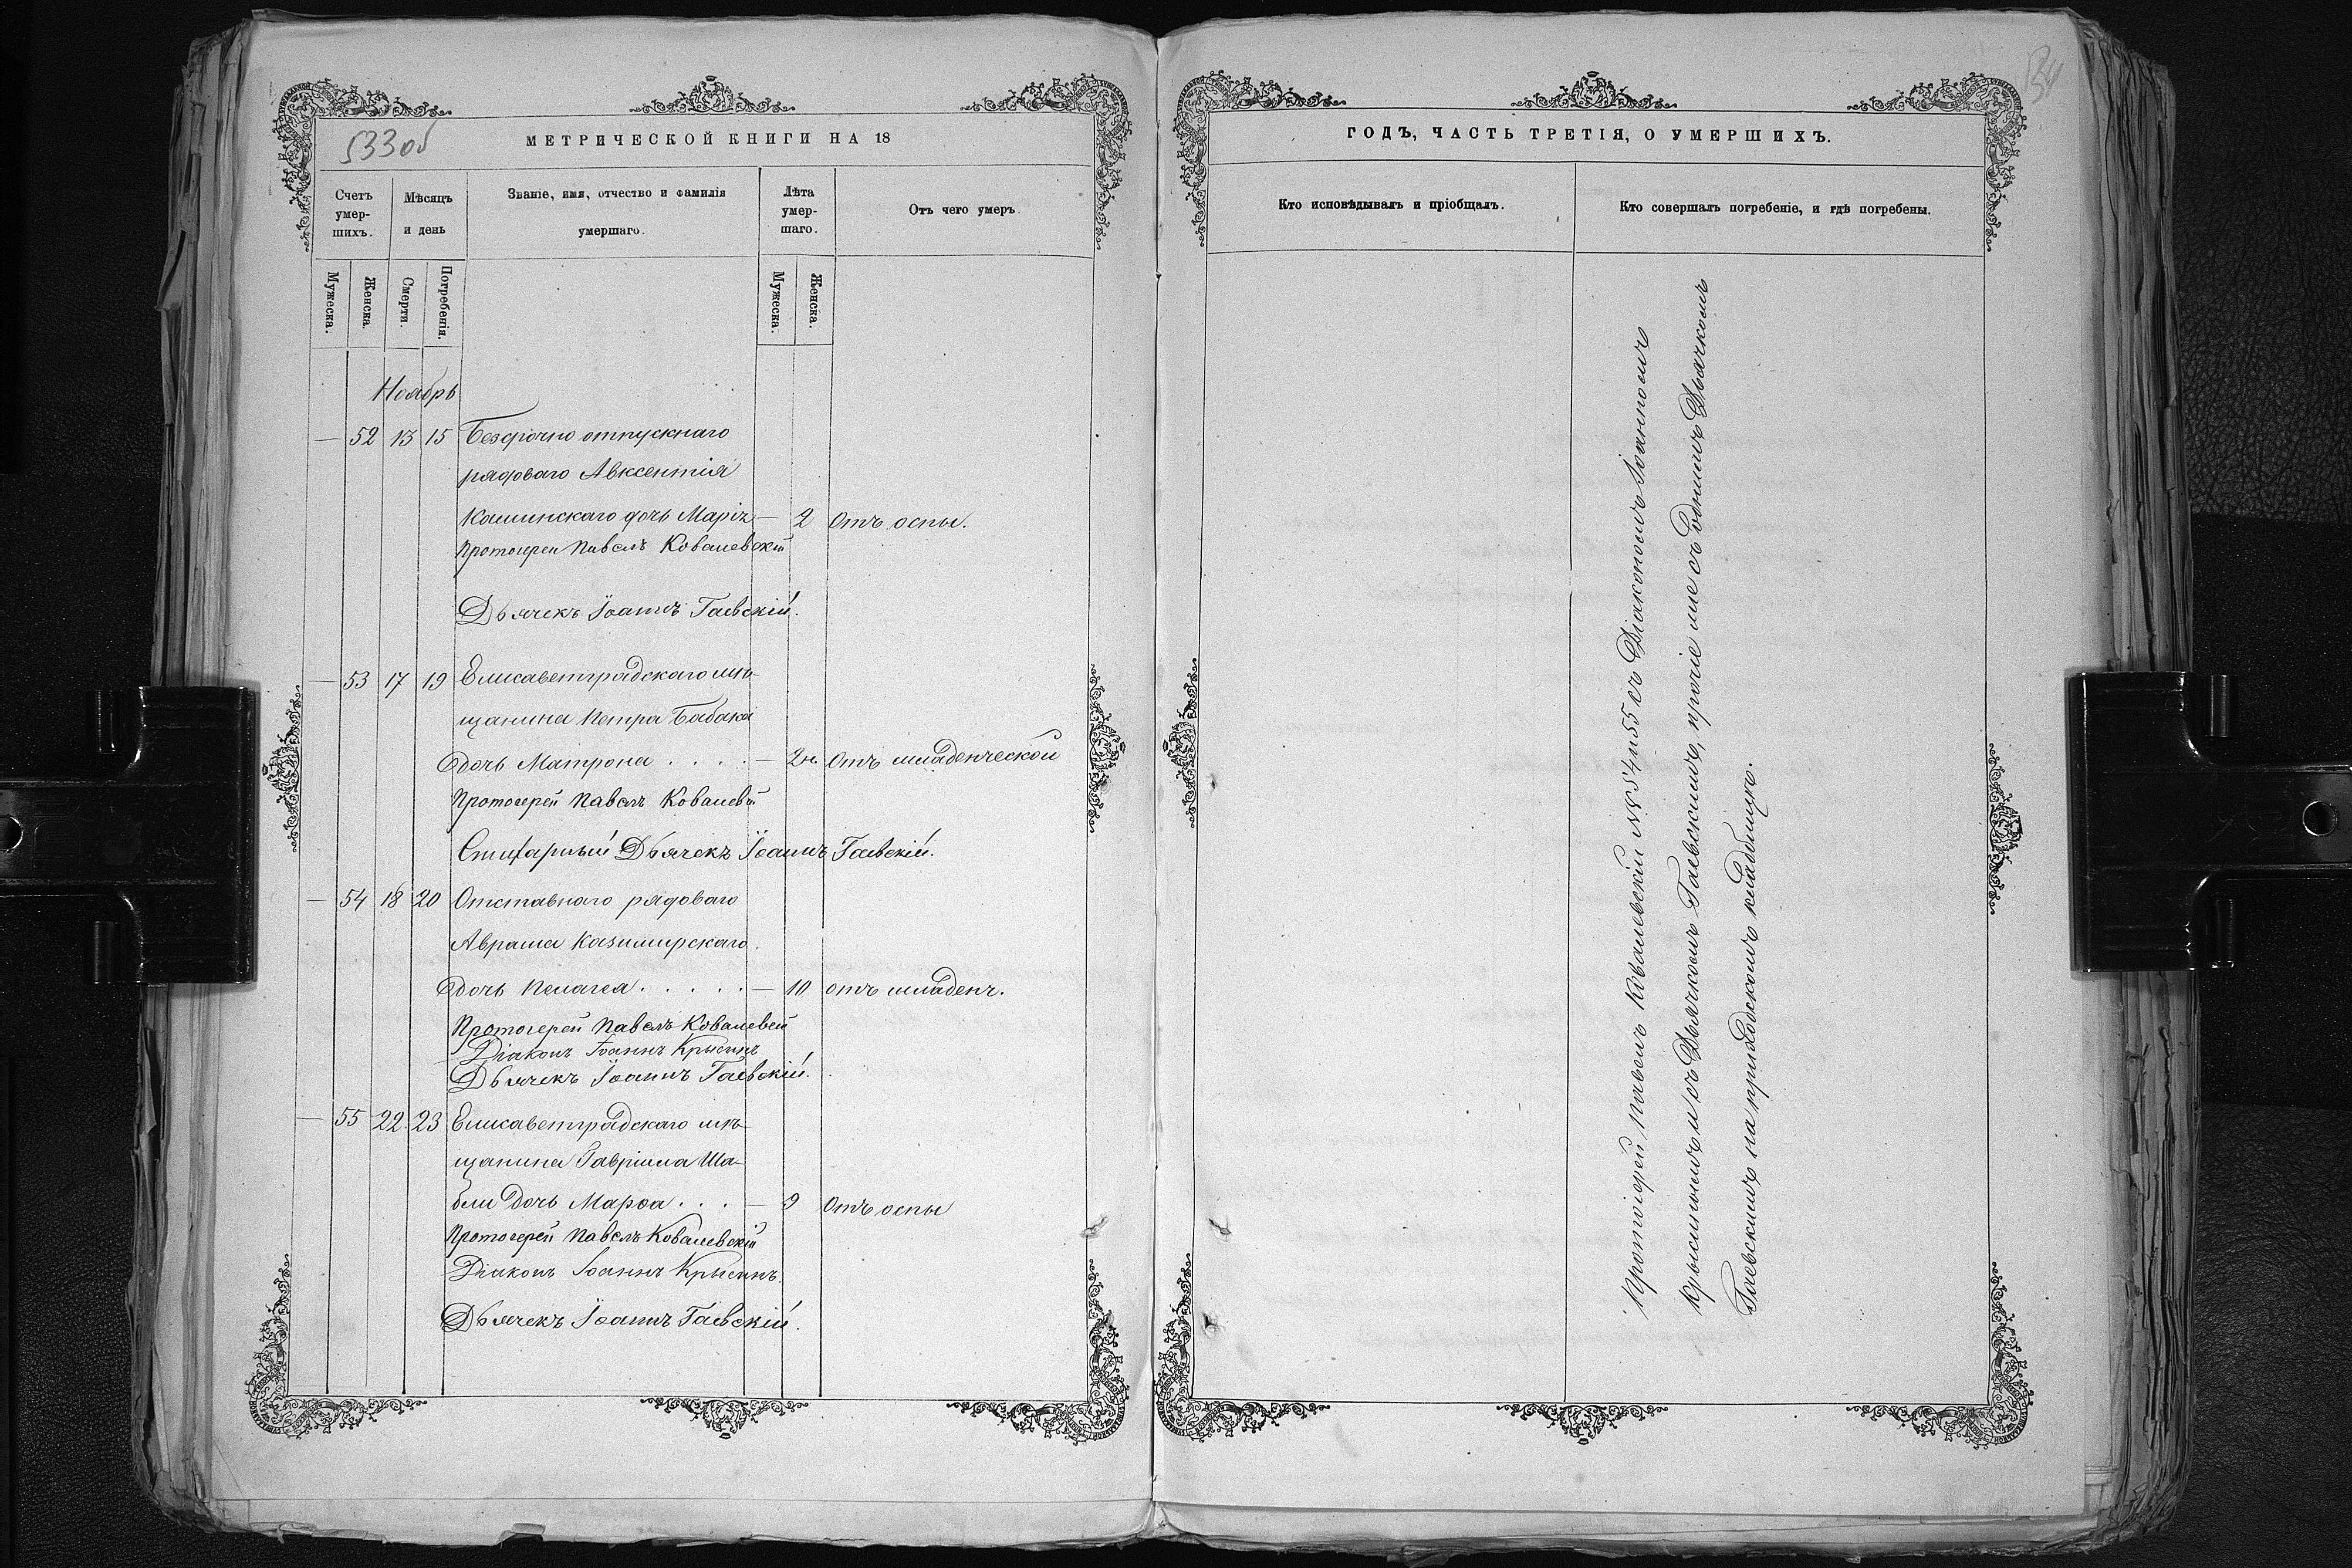 533 об
МЕТРИЧЕСКОЙ КНИГИ НА 18
Счетъ умер-шихъ.
Мѣсяцъ и день
Званіе, имя, отчество и фамилія умершаго.
Лѣта умер-шаго.
Отъ чего умеръ.
Мужеска.
Женска.
Смерти.
Погребенія.
Мужеска.
Женска.
Ноябрь
— 52 13 15 Безсрочно отпускнаго
рядоваго Авксентія
Кашинскаго дочь Марія — 2 Отъ оспы.
Протоіерей Павелъ Ковалевскій
Дьячекъ Іоаннъ Гаевскій.
— 53 17 19 Елисаветградскаго мѣ-
щанина Петра Бабака
дочь Матрона . . . . — 2 н. Отъ младенческой
Протоіерей Павелъ Ковалевскій
Стихарный Дьячекъ Іоаннъ Гаевскій.
— 54 18 20 Отставнаго рядоваго
Аврама Казимирскаго
дочь Пелагея . . . . . — 10 отъ младенч.
Протоіерей Павелъ Ковалевскій
Діаконъ Іоаннъ Крысинъ
Дьячекъ Іоаннъ Гаевскій.
— 55 22 23 Елисаветградскаго мѣ-
щанина Гавріила Ша-
бли дочь Марѳа . . . — 9 Отъ оспы
Протоіерей Павелъ Ковалевскій
Діаконъ Іоаннъ Крысинъ.
Дьячекъ Іоаннъ Гаевскій.
ГОДЪ, ЧАСТЬ ТРЕТІЯ, О УМЕРШИХЪ.
Кто исповѣдывалъ и пріобщалъ.
Кто совершалъ погребеніе, и гдѣ погребены.
Протоіерей Павелъ Ковалевскій №№ 54 и 55 съ Діакономъ Іоанномъ
Крысинымъ и съ Дьячкомъ Гаевскимъ, прочіе же съ однимъ Дьячкомъ
Гаевскимъ на приходскомъ кладбищѣ.